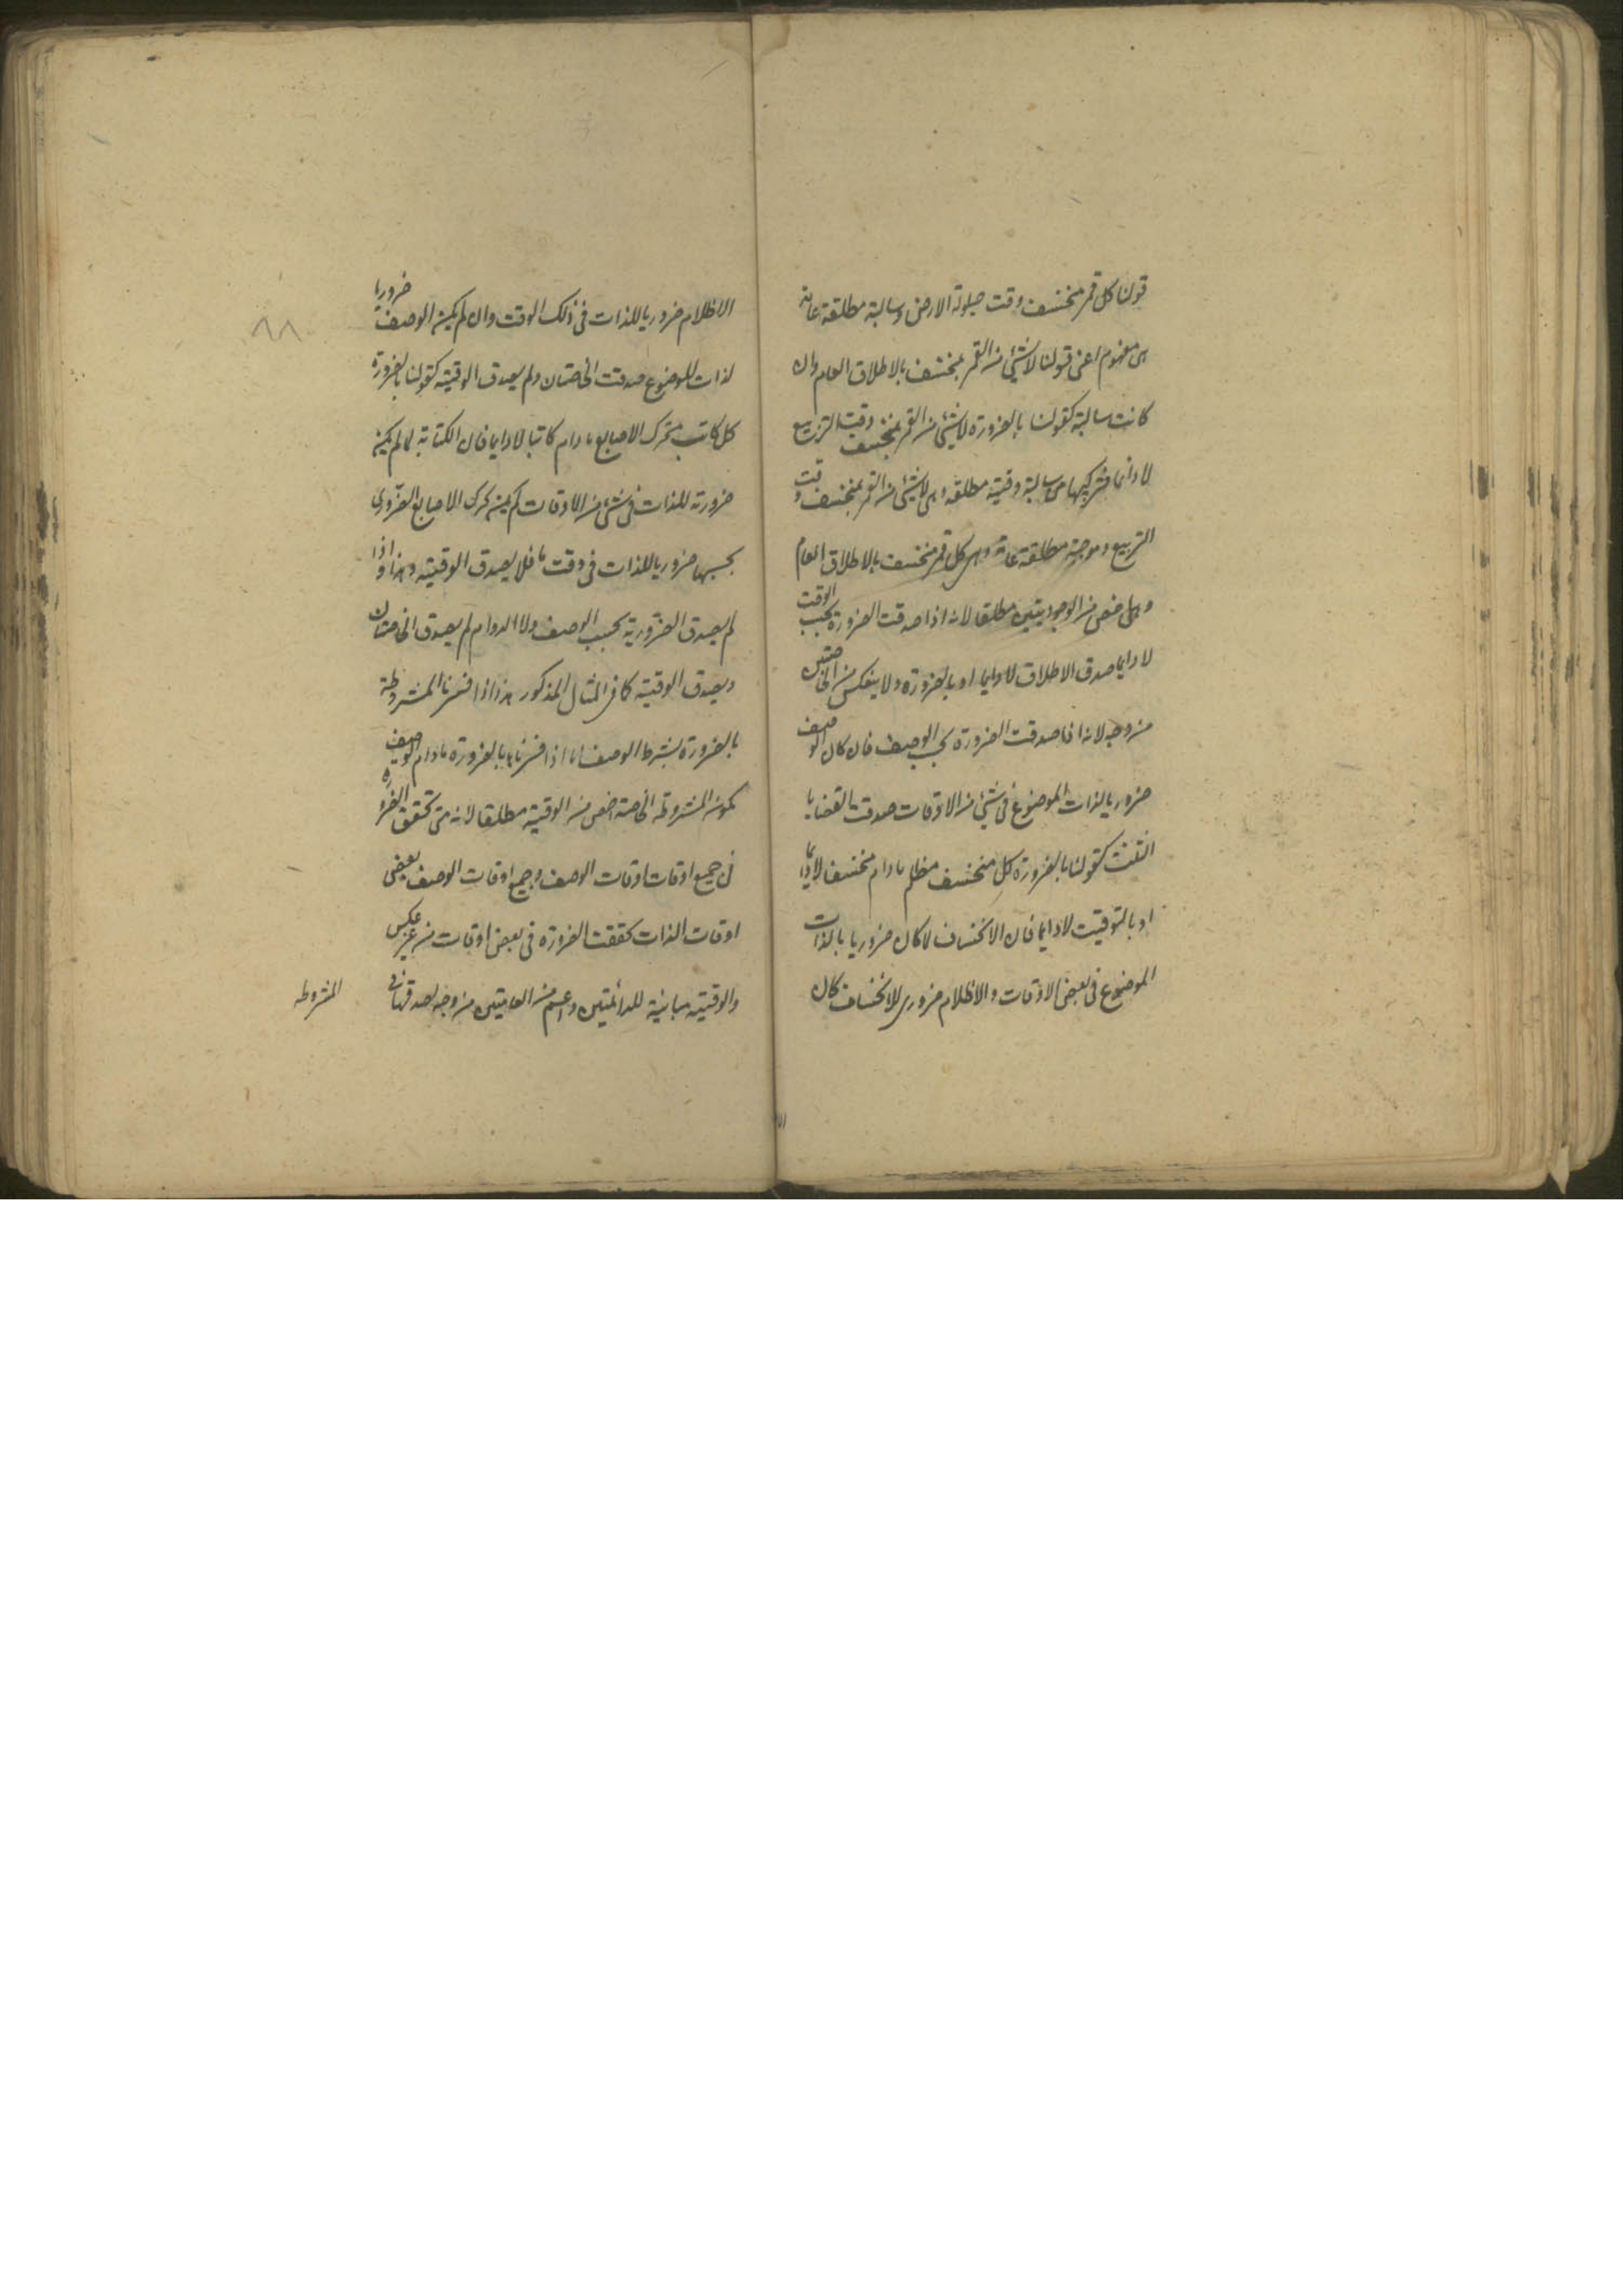 قولنا كل قمر منخسف وقت حيلولة الارض وسالبة مطلقة عامة
هى مفهوم اعنى قولنا لا شئ من القمر بمنخسف بالاطلاق العام وان
كانت سالبة كقولنا بالضرورة لا شئ من القمر بمنخسف وقت التربيع
لا دائما فتركيبها من سالبة وقتية مطلقة وهى لا شئ من القمر بمنخسف وقت
التربيع وموجبة مطلقة عامة وهى كل قمر منخسف بالاطلاق العام
وهى اخص من الوجوديتين مطلقا لانه اذا صدقت الضرورة بحسب الوقت
لا دايما صدق الاطلاق لا دايما او بالضرورة ولا ينعكس من الخاصتين
من وجه لانه اذا صدقت الضرورة بحسب الوصف فان كان الوصف
ضروريا لذات الموضوع فى شئ من الاوقات صدقت القضايا
الثلث كقولنا بالضرورة كل منخسف مظلم ما دام منخسفا لا دايما
او بالتوقيت لا دايما فان الانخساف لما كان ضروريا بالذات
الموضوع فى بعض الاوقات والاظلام ضرورى للانخساف كان
٨٨
الاظلام ضروريا للذات فى ذلك الوقت وان لم يكن الوصف ضروريا
لذات الموضوع صدقت الخاصتان ولم يصدق الوقتية كقولنا بالضرورة
كل كاتب متحرك الاصابع ما دام كاتبا لا دايما فان الكتابة لما لم يكن
ضرورية للذات فى شئ من الاوقات لم يكن تحرك الاصابع الضرورى
بحسبها ضروريا للذات فى وقت ما فلا يصدق الوقتية وهذا واذا
لم يصدق الضرورية بحسب الوصف ولا الدوام لم يصدق الخاصتان
ويصدق الوقتية كما فى المثال المذكور هذا اذا فسرنا المشروطة
بالضرورة بشرط الوصف اما اذا فسرناها بالضرورة ما دام الوصف
يكون المشروطة الخاصة اخص من الوقتية مطلقا لانه متى تحقق الضرورة
فى جميع اوقات اوقات الوصف وجميع اوقات الوصف بعض
اوقات الذات تحققت الضرورة فى بعض اوقات من غير عكس
والوقتية مباينة للدائمتين واعم من العامتين من وجه لصدقها فى
المشروطه